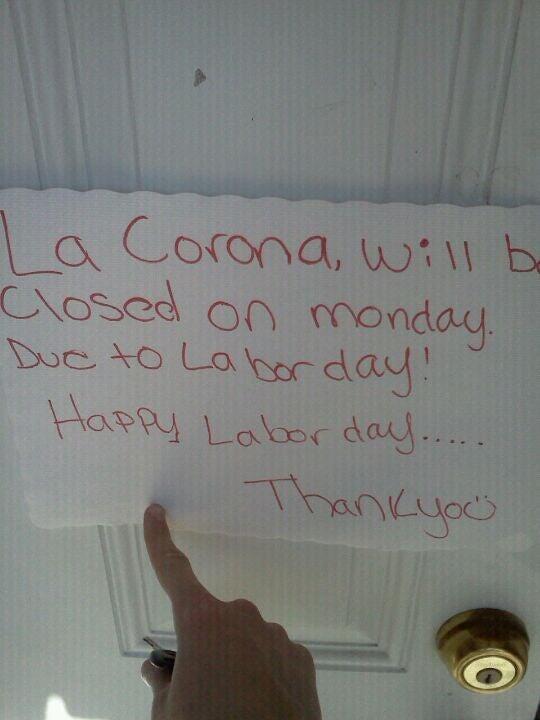 La Corona, will be
Closed on monday.
Due to Labor day!
Happy Labor day.....
Thankyou